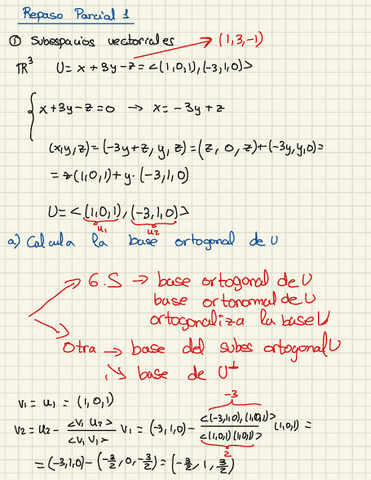 Repaso Parcial 1
① Subespacios vectorrales (1,3,-1)
ℝ³ U = x + 3y - z = <(1,0,1),(-3,1,0)>
{ x+3y-z=0 → x=-3y+z
(x,y,z)=(-3y+z, y, z)=(z, 0, z)+(-3y,y,0)=
= z(1,0,1)+y·(-3,1,0)
U=<(1,0,1),(-3,1,0)>
u₁ u₂
a) Calcula la base ortogonal de U
G.S → base ortogonal de U
base ortonormal de U
ortogonaliza la base U
Otra → base del subes ortogonal U
↘ base de U⊥
-3
v₁ = u₁ = (1,0,1)
v₂ = u₂ - <v₁ u₂>/<v₁ v₁> v₁ = (-3,1,0) - <(-3,1,0),(1,0,1)>/<(1,0,1)(1,0,1)> (1,0,1) =
2
= (-3,1,0) - (-3/2, 0, -3/2) = (-3/2, 1, 3/2)